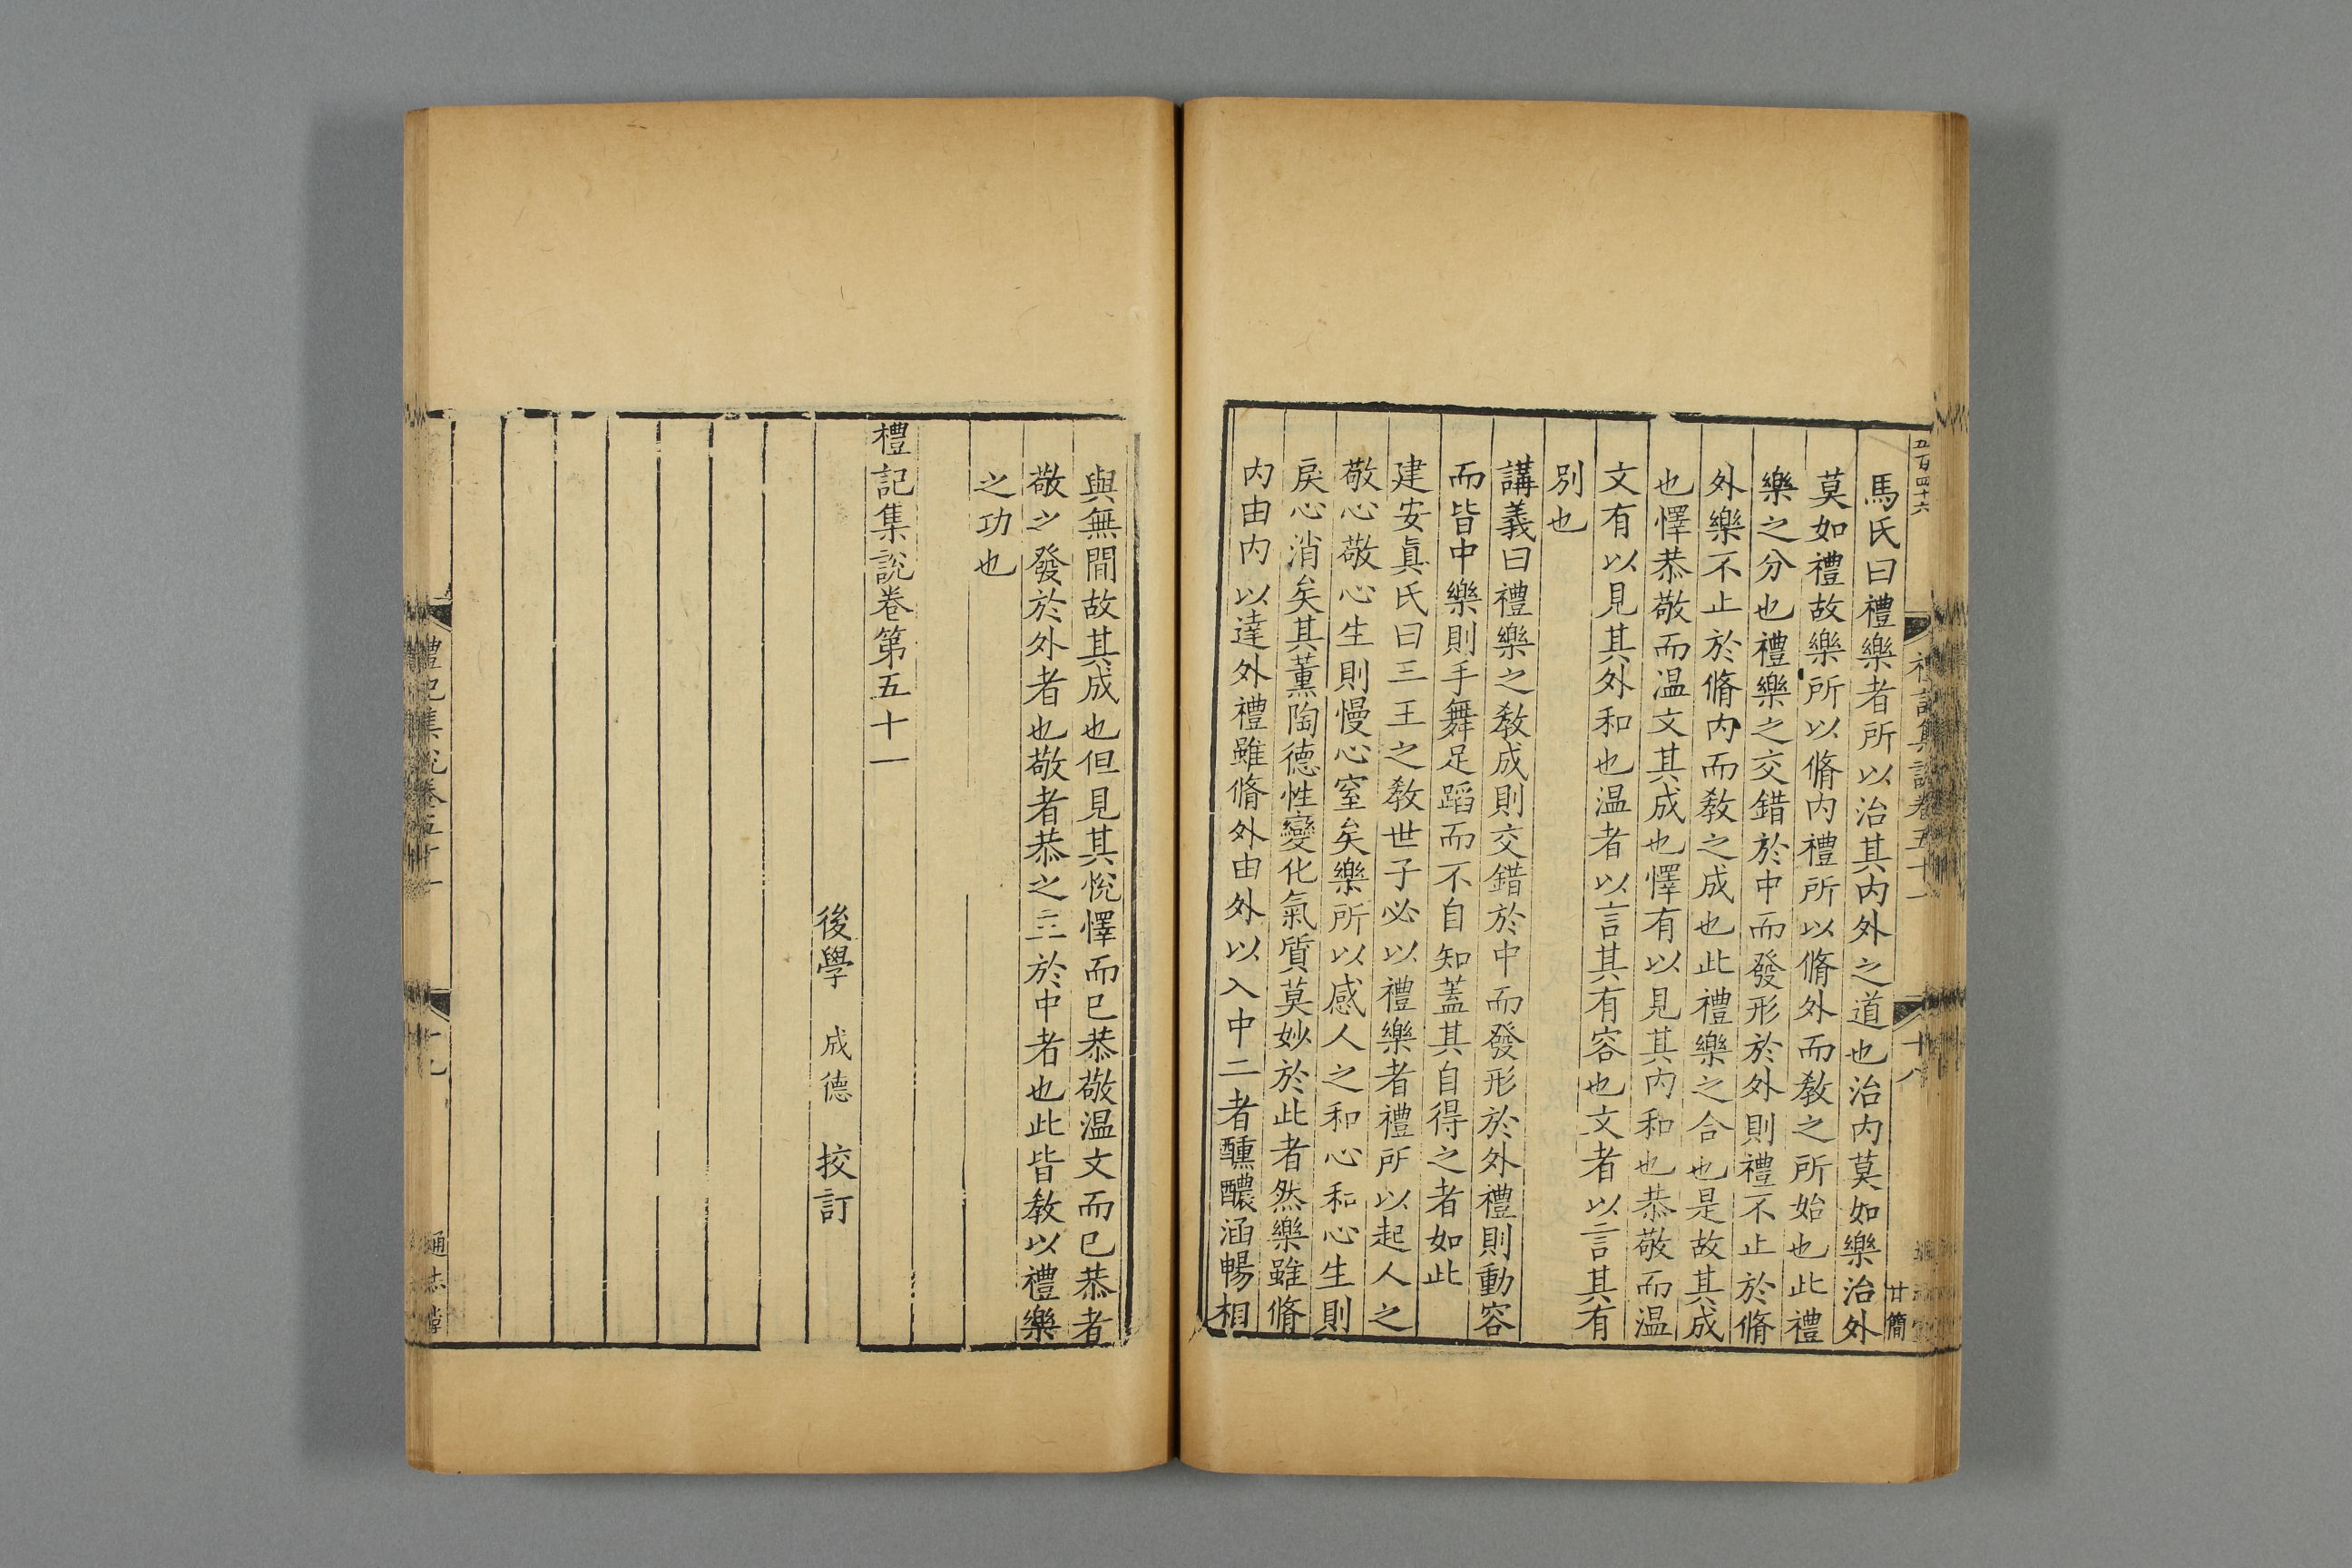 五百四十六
禮記集說卷五十一
十八
甘簡
馬氏曰禮樂者所以治其内外之道也治内莫如樂治外
莫如禮故樂所以脩内禮所以脩外而敎之所始也此禮
樂之分也禮樂之交錯於中而發形於外則禮不止於脩
外樂不止於脩内而敎之成也此禮樂之合也是故其成
也懌恭敬而温文其成也懌有以見其内和也恭敬而温
文有以見其外和也温者以言其有容也文者以言其有
別也
講義曰禮樂之敎成則交錯於中而發形於外禮則動容
而皆中樂則手舞足蹈而不自知蓋其自得之者如此
建安眞氏曰三王之敎世子必以禮樂者禮所以起人之
敬心敬心生則慢心窒矣樂所以感人之和心和心生則
戾心消矣其薰陶德性變化氣質莫妙於此者然樂雖脩
内由内以達外禮雖脩外由外以入中二者醺醲涵暢相
與無間故其成也但見其悅懌而已恭敬温文而已恭者
敬之發於外者也敬者恭之主於中者也此皆敎以禮樂
之功也
禮記集說卷第五十一
後學 成德 挍訂
禮記集說卷五十一
十九
通志堂